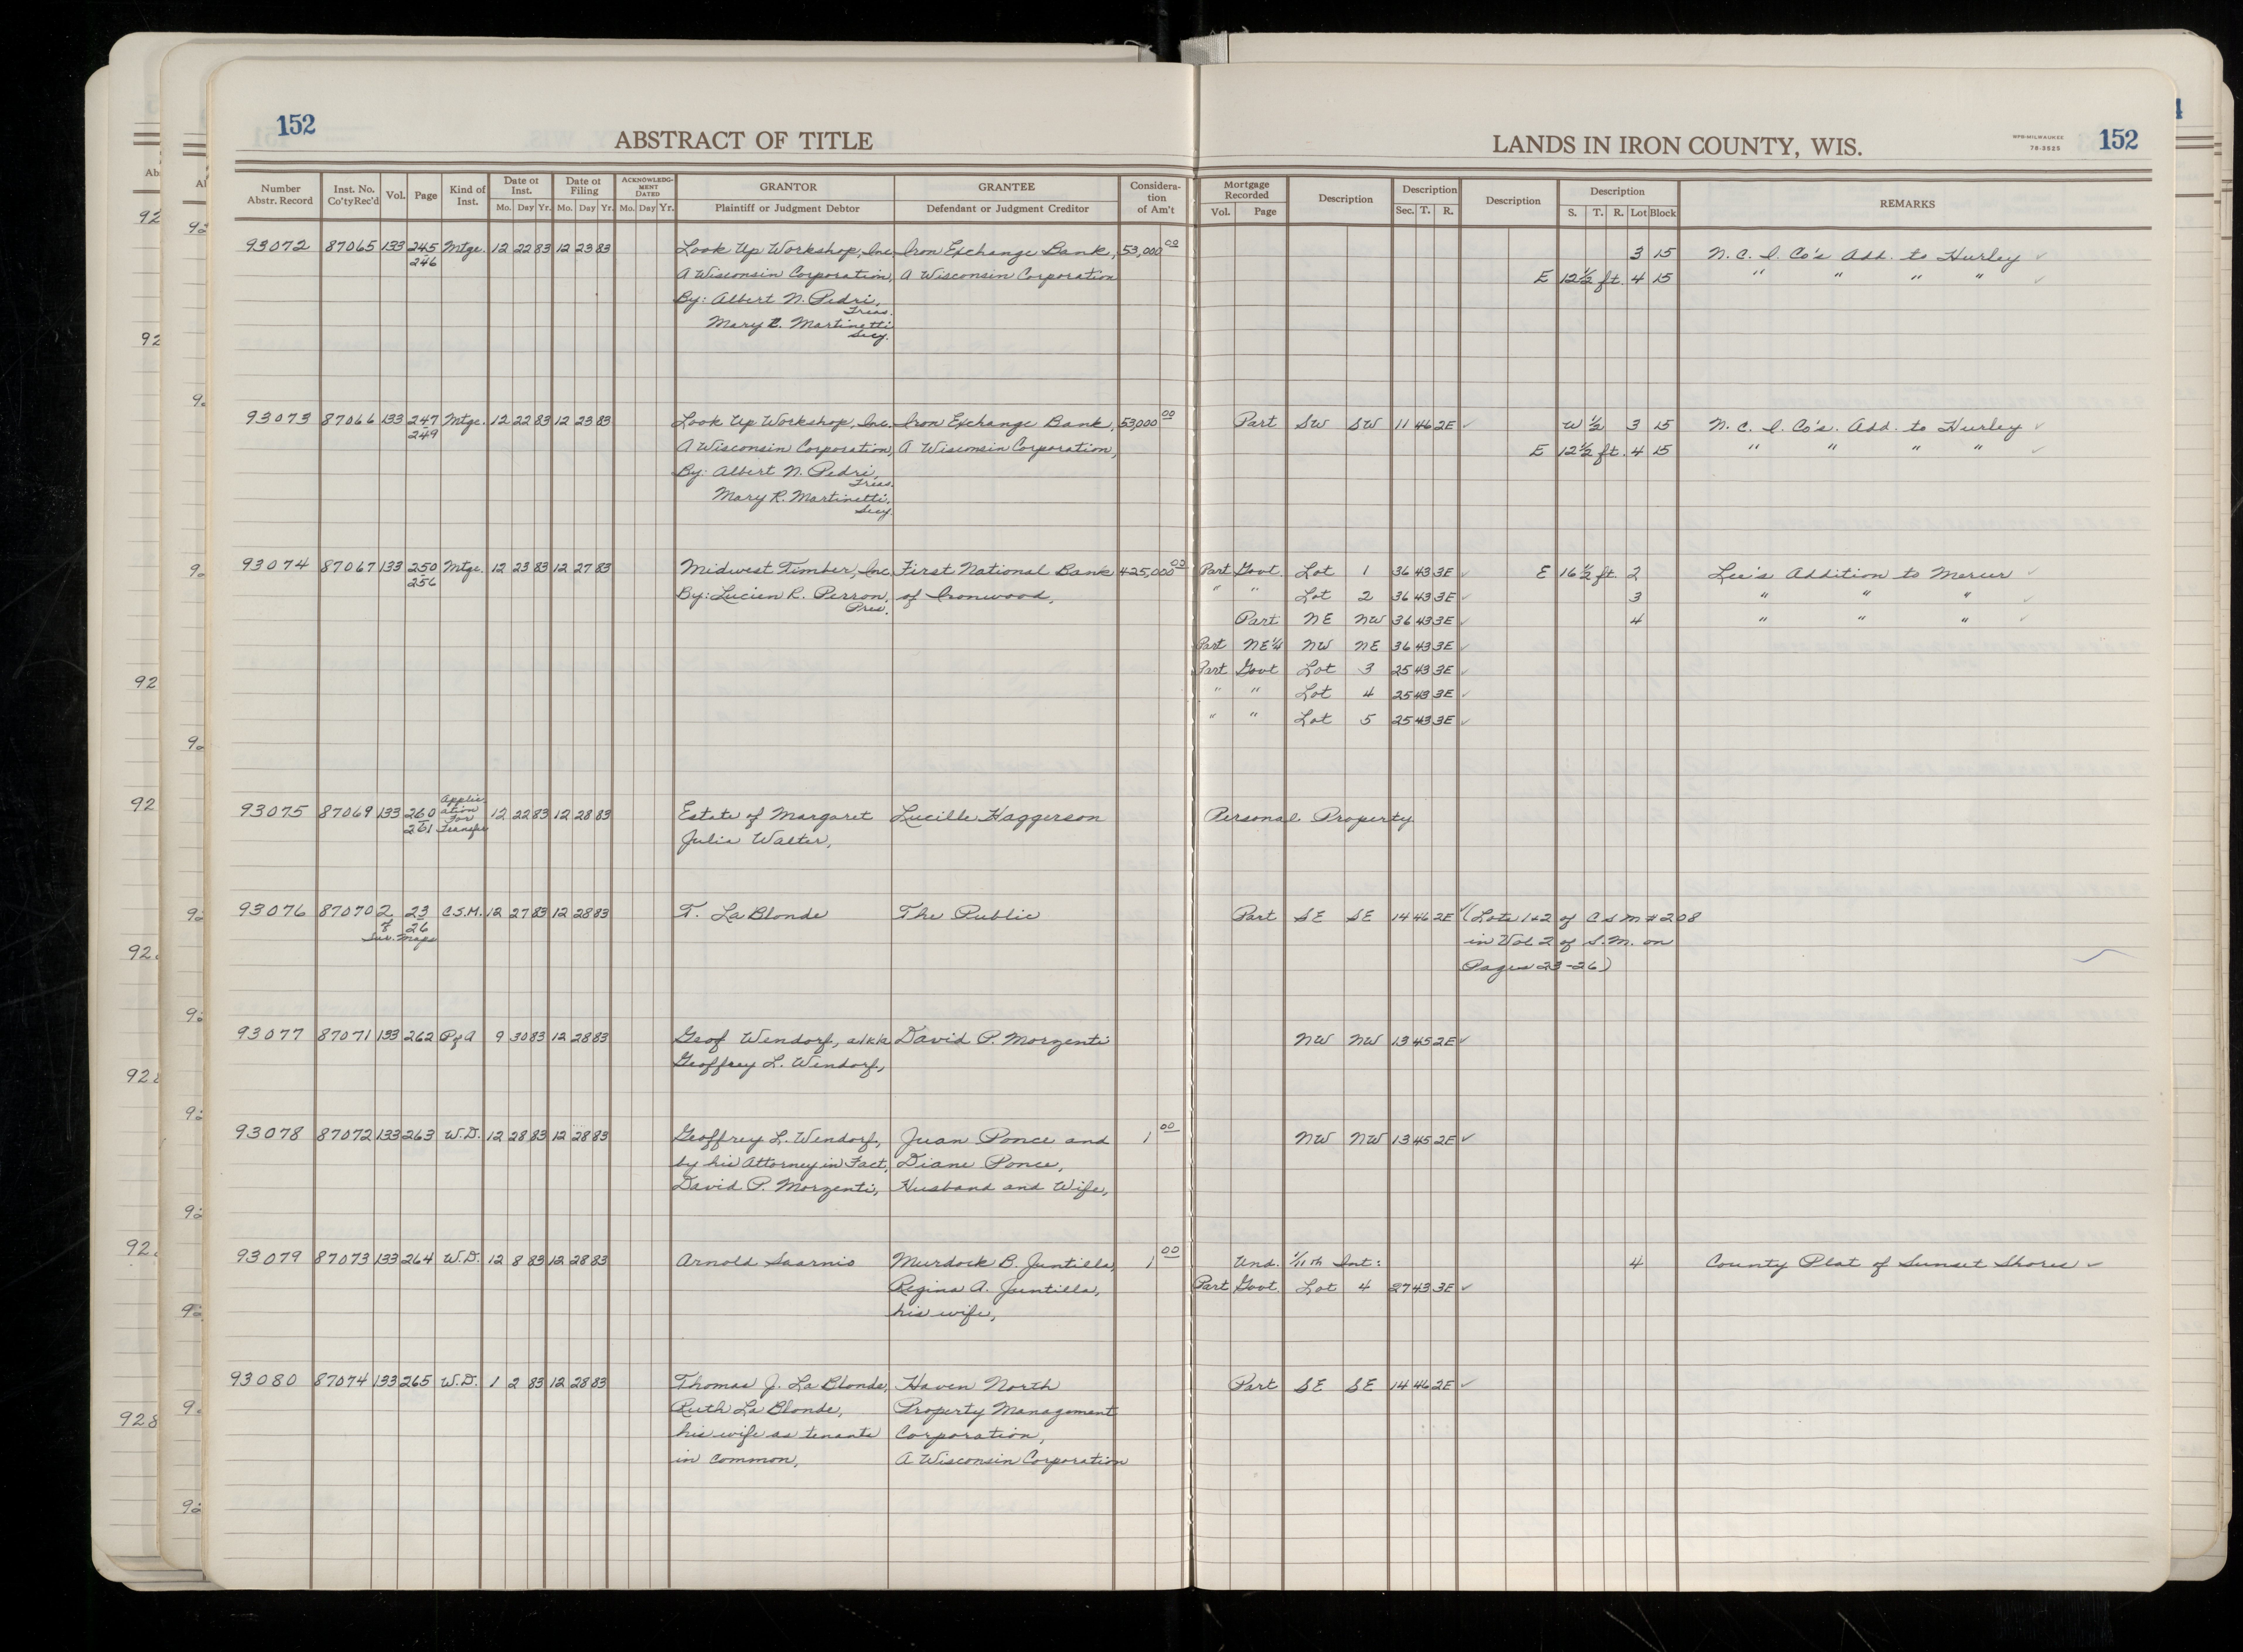 152
ABSTRACT OF TITLE
LANDS IN IRON COUNTY, WIS.
WPB-MILWAUKEE
78-3525
152
Number Abstr. Record Inst. No. Co'ty Rec'd Vol. Page Kind of Inst. Date of Inst. Mo. Day Yr. Date of Filing Mo. Day Yr. ACKNOWLEDGMENT DATED Mo. Day Yr. GRANTOR Plaintiff or Judgment Debtor GRANTEE Defendant or Judgment Creditor Consideration of Am't Mortgage Recorded Vol. Page Description Description Sec. T. R. Description Description S. T. R. Lot Block REMARKS
93072 87065 133 245 Mtge. 12 22 83 12 23 83 Look Up Workshop, Inc. Iron Exchange Bank, 53,000 00 3 15 N. C. I. Co's Add. to Hurley ✓
246 A Wisconsin Corporation, A Wisconsin Corporation E 12 1/2 ft. 4 15 " " " " ✓
By: Albert N. Pedri, Treas.
Mary R. Martinetti Secy.
93073 87066 133 247 Mtge. 12 22 83 12 23 83 Look Up Workshop, Inc. Iron Exchange Bank, 53,000 00 Part SW SW 11 46 2E ✓ W 1/2 3 15 N. C. I. Co's. Add. to Hurley ✓
249 A Wisconsin Corporation, A Wisconsin Corporation, E 12 1/2 ft. 4 15 " " " " ✓
By: Albert N. Pedri, Treas.
Mary R. Martinetti, Secy.
93074 87067 133 250 Mtge. 12 23 83 12 27 83 Midwest Timber, Inc. First National Bank 425,000 00 Part Govt Lot 1 36 43 3E ✓ E 16 1/2 ft. 2 Lee's Addition to Mercer ✓
256 By: Lucien R. Perron, Pres. of Ironwood, " " Lot 2 36 43 3E ✓ 3 " " " ✓
Part NE NW 36 43 3E ✓ 4 " " " ✓
Part NE 1/4 NW NE 36 43 3E ✓
Part Govt Lot 3 25 43 3E ✓
" " Lot 4 25 43 3E ✓
" " Lot 5 25 43 3E ✓
93075 87069 133 260 261 Application For Transfer 12 22 83 12 28 83 Estate of Margaret Lucille Haggerson Personal Property
Julia Walter,
93076 87070 2 23 C.S.M. 12 27 83 12 28 83 T. La Blonde The Public Part SE SE 14 46 2E ✓ (Lots 1+2 of C S M # 208
of 26 in Vol. 2 of S.M. on
Sur. Maps Pages 23-26)
93077 87071 133 262 P of A 9 30 83 12 28 83 Geof Wendorf, a/k/a David P. Morzenti NW NW 13 45 2E ✓
Geoffrey L. Wendorf,
93078 87072 133 263 W.D. 12 28 83 12 28 83 Geoffrey L. Wendorf, Juan Ponce and 1 00 NW NW 13 45 2E ✓
by his Attorney in Fact, Diane Ponce,
David P. Morzenti, Husband and Wife,
93079 87073 133 264 W.D. 12 8 83 12 28 83 Arnold Saarnio Murdock B. Juntilla, 1 00 Und. 1/11th Int: 4 County Plat of Sunset Shores ✓
Regina A. Juntilla, Part Govt. Lot 4 27 43 3E ✓
his wife,
93080 87074 133 265 W.D. 1 2 83 12 28 83 Thomas J. La Blonde, Haven North Part SE SE 14 46 2E ✓
Ruth La Blonde, Property Management
his wife as tenants Corporation,
in common, A Wisconsin Corporation